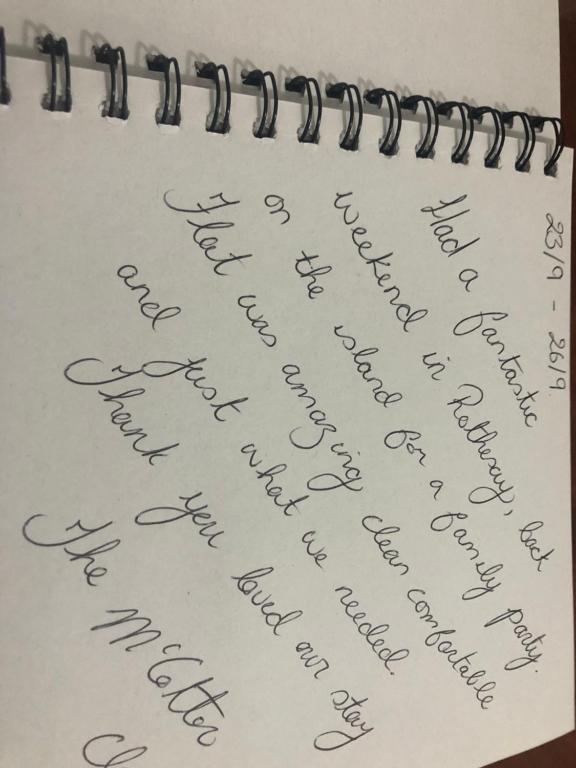 23/9 - 26/9.
Had a fantastic
weekend in Rothesay, back
on the island for a family party.
Flat was amazing clean comfortable
and just what we needed.
Thank you loved our stay
The